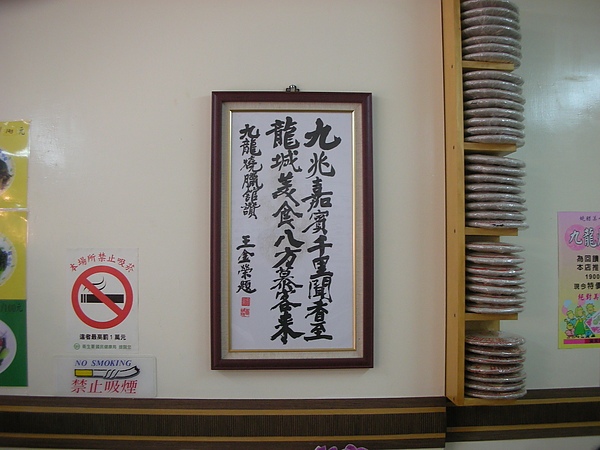 九兆嘉賓千里聞香至
龍城美食八方慕客來
九龍燒臘館讚
王金榮題
本場所禁止吸菸
違者最高罰1萬元
NO SMOKING
禁止吸煙
元
九龍
為回饋
本店推
1900
現今特價
絕對美